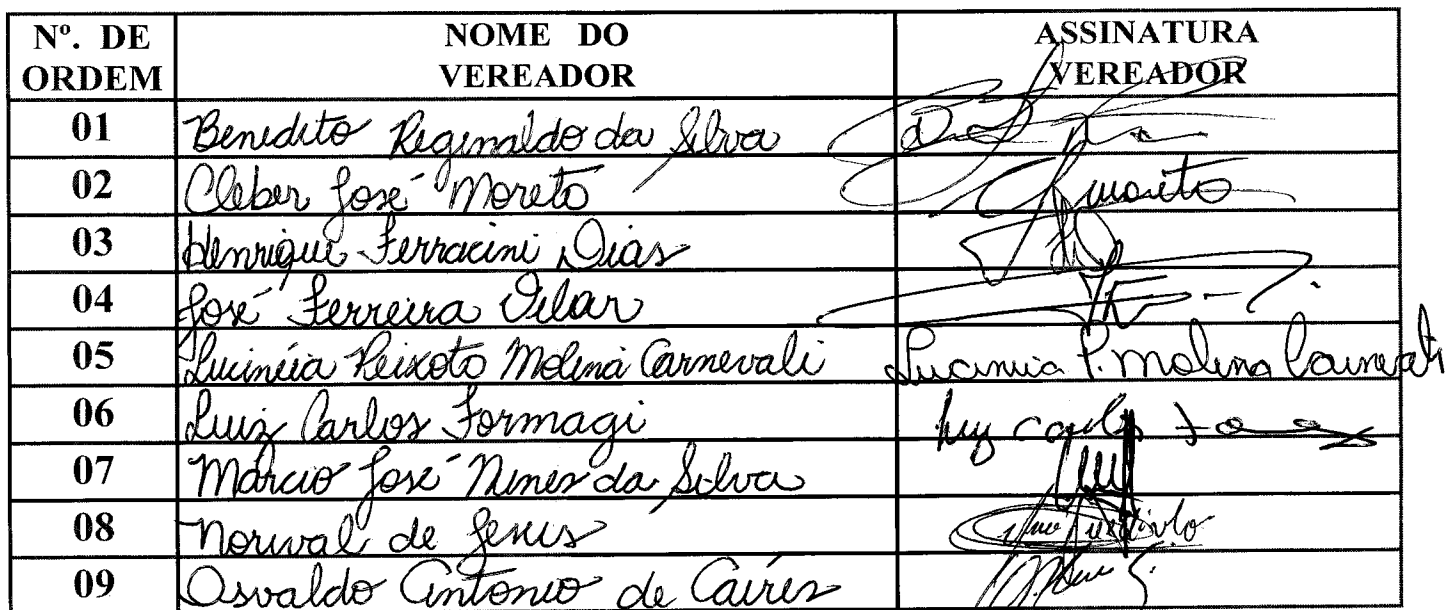 Nº. DE ORDEM NOME DO VEREADOR ASSINATURA VEREADOR
01 Benedito Reginaldo da Silva
02 Cleber José Moreto Moreto
03 Henrique Ferracini Dias
04 José Ferreira Vilar
05 Lucinéia Peixoto Molina Carnevali Lucineia P. Molina Carnevali
06 Luiz Carlos Formagi Luiz Carlos
07 Márcio José Nunes da Silva
08 Norival de Jesus
09 Osvaldo Antonio de Caires